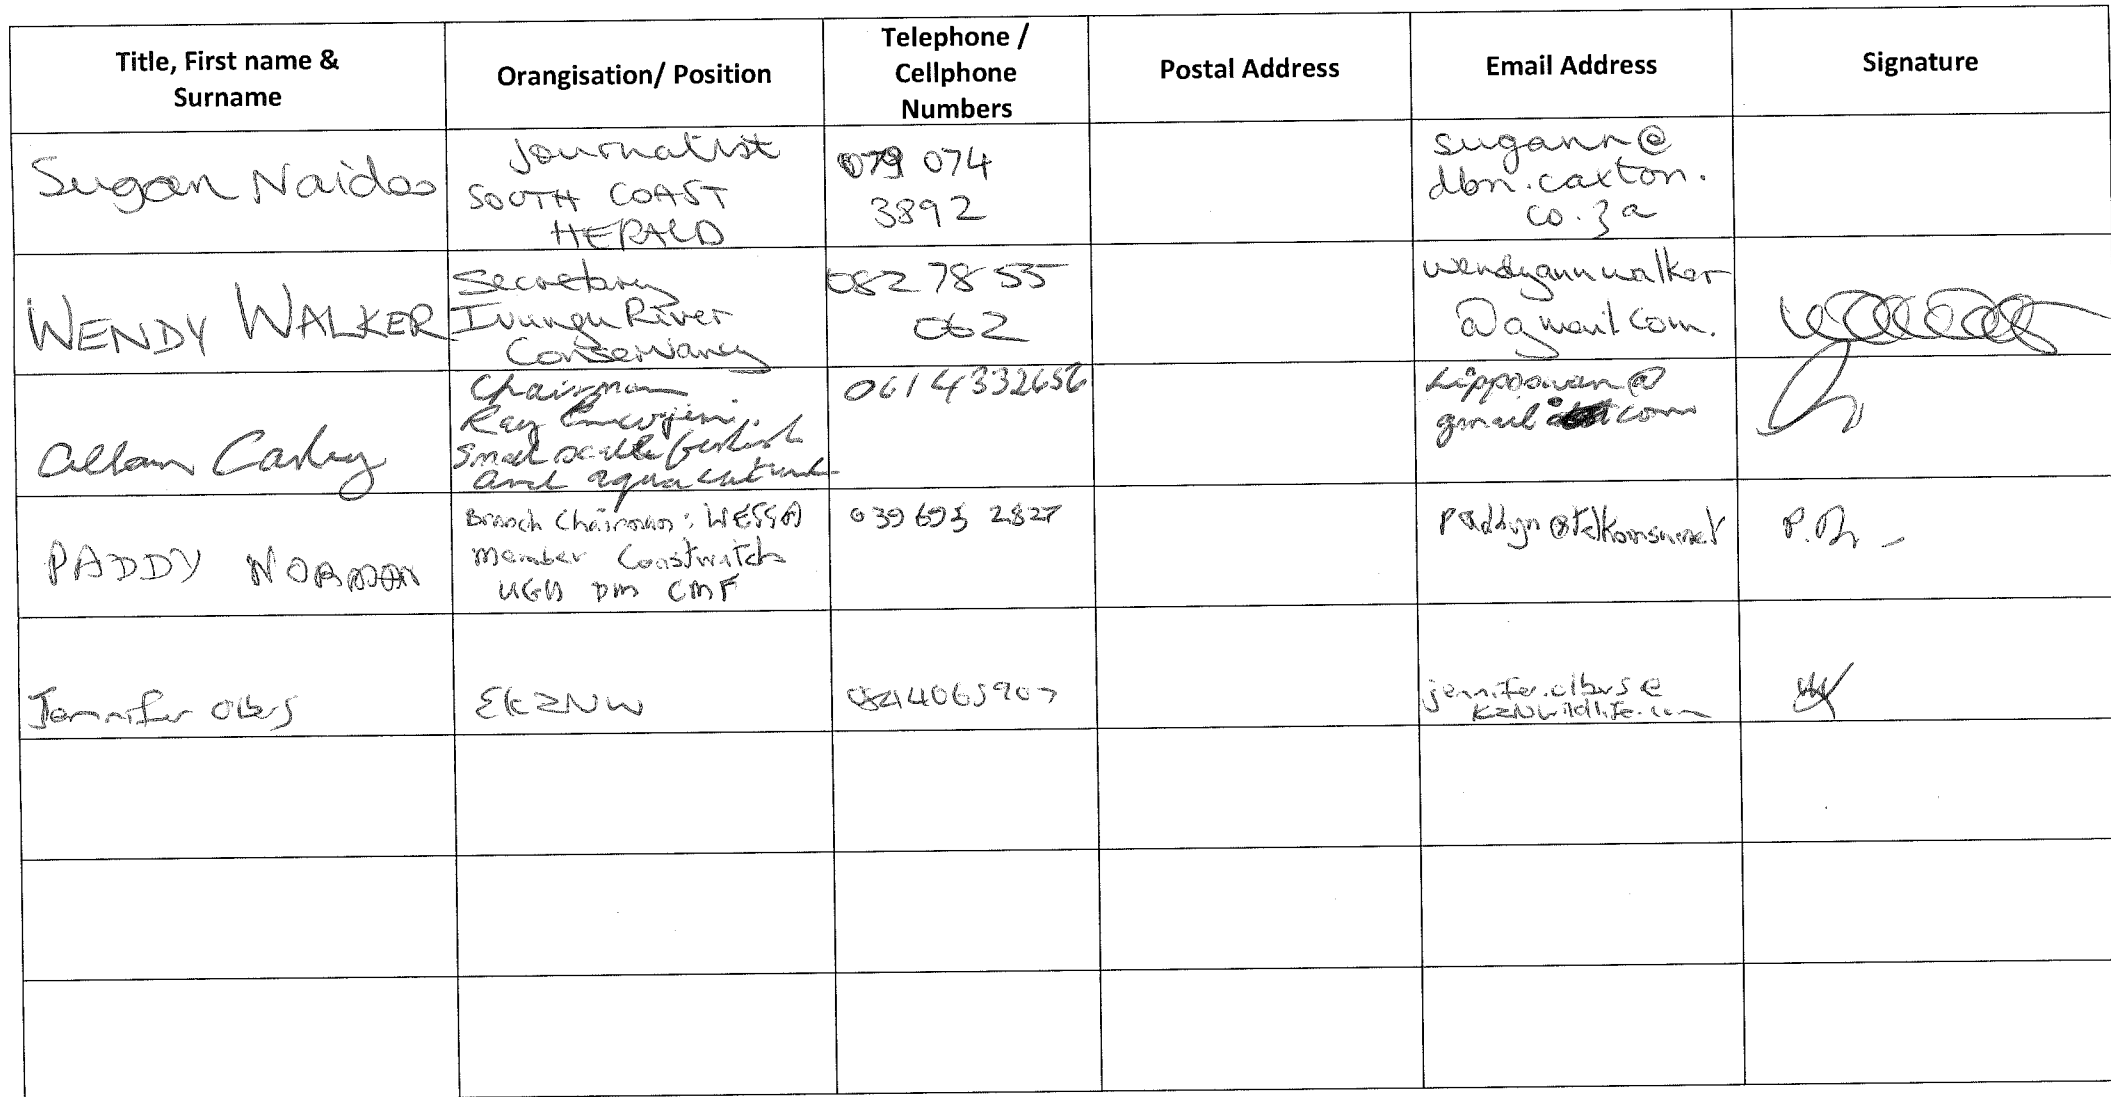 Title, First name &
Surname
Orangisation/ Position
Telephone /
Cellphone
Numbers
Postal Address
Email Address
Signature
Sugan Naidoo
Journalist
SOUTH COAST
HERALD
079 074
3892
sugann@
dbn.caxton.
co.za
WENDY WALKER
Secretary
Ivungu River
Conservancy
082 78 55
062
wendyannwalker
@gmail com.
Allan Carley
Chairman
Ray
Small scale
and aquaculture
061 4332656
@
gmail com
PADDY NORMAN
Branch Chairman: WESSA
Member Coastwatch
UGU DM CMF
039 695 2827
paddyn@telkomsa.net
P.N
Jennifer Olbers
EKZNW
0214065907
jennifer.olbers@
KZNwildlife.com